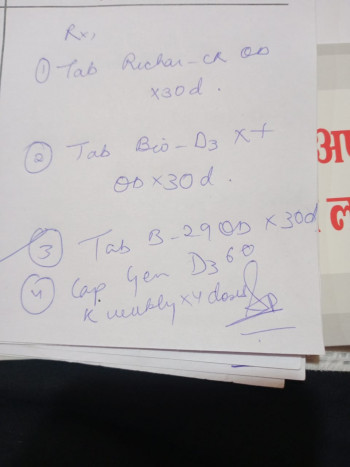 Rx,
① Tab Richar-CR OD
x30d.
② Tab Bio-D3 x+
OD x30d.
③ Tab B-29 OD x30d
④ Cap. Gen D3 60
K weekly x4 doses
अप
ल